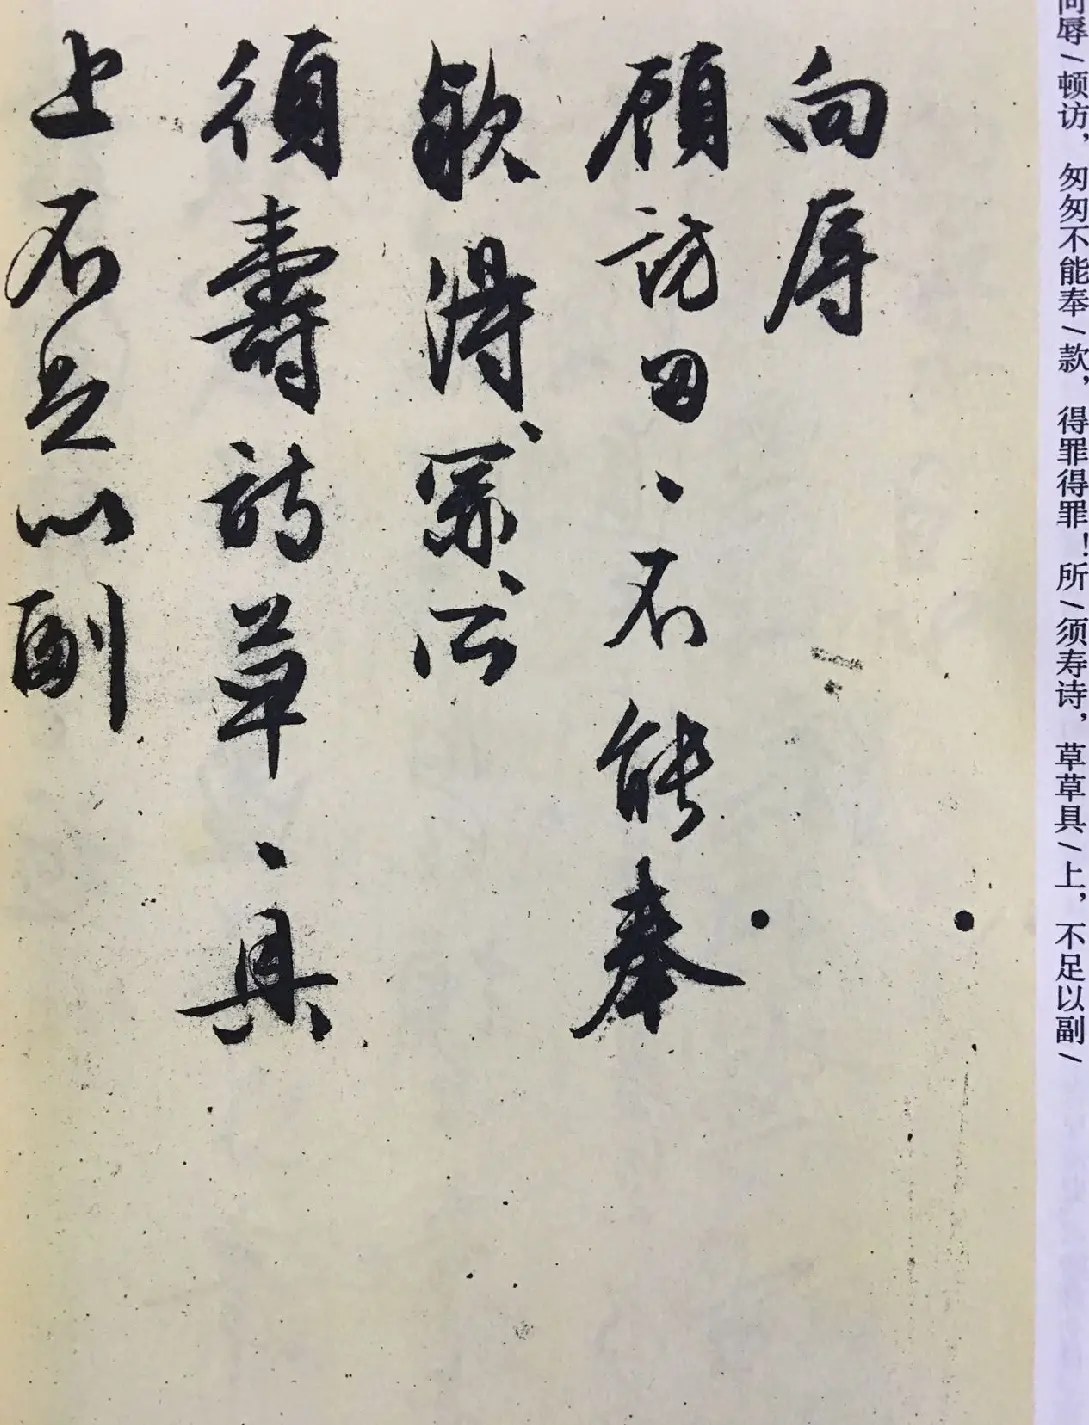 向辱
顾访匆、不能奉
款得、罪、所
须寿诗草、具
上不足以副
向辱/顿访，匆匆不能奉/款，得罪得罪！所/须寿诗，草草具/上，不足以副/